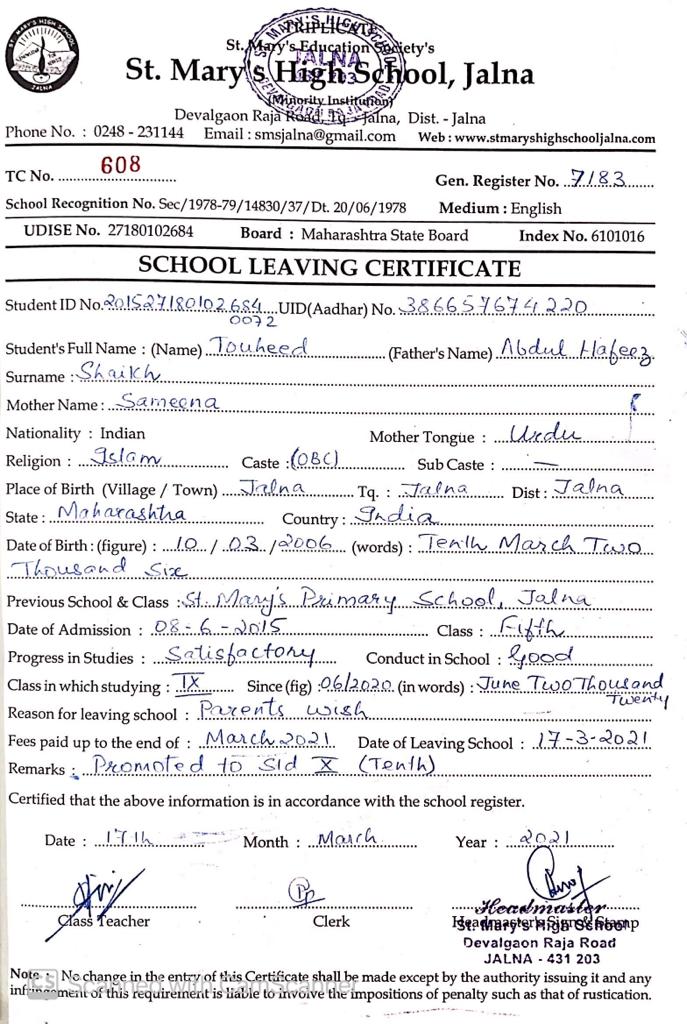 TRIPLICATE
St. Mary's Education Society's
St. Mary's High School, Jalna
(Minority Institution)
Devalgaon Raja Road, Tq. - Jalna, Dist. - Jalna
Phone No. : 0248 - 231144 Email : smsjalna@gmail.com Web : www.stmaryshighschooljalna.com
TC No. 608 Gen. Register No. 7183
School Recognition No. Sec/1978-79/14830/37/Dt. 20/06/1978 Medium : English
UDISE No. 27180102684 Board : Maharashtra State Board Index No. 6101016
SCHOOL LEAVING CERTIFICATE
Student ID No. 201527180102684 UID(Aadhar) No. 386657674220
0072
Student's Full Name : (Name) Touheed (Father's Name) Abdul Hafeez
Surname : Shaikh
Mother Name : Sameena
Nationality : Indian Mother Tongue : Urdu
Religion : Islam Caste : (OBC) Sub Caste : —
Place of Birth (Village / Town) Jalna Tq. : Jalna Dist : Jalna
State : Maharashtra Country : India
Date of Birth : (figure) : 10 / 03 / 2006 (words) : Tenth March Two
Thousand Six
Previous School & Class : St. Mary's Primary School, Jalna
Date of Admission : 08-6-2015 Class : Fifth
Progress in Studies : Satisfactory Conduct in School : Good
Class in which studying : IX Since (fig) : 06/2020 (in words) : June Two Thousand
Twenty
Reason for leaving school : Parents wish
Fees paid up to the end of : March 2021 Date of Leaving School : 17-3-2021
Remarks : Promoted to Std X (Tenth)
Certified that the above information is in accordance with the school register.
Date : 17th Month : March Year : 2021
Class Teacher Clerk Headmaster's Sign & Stamp
Headmaster
St. Mary's High School
Devalgaon Raja Road
JALNA - 431 203
Note : No change in the entry of this Certificate shall be made except by the authority issuing it and any
infringement of this requirement is liable to involve the impositions of penalty such as that of rustication.
CS Scanned with CamScanner